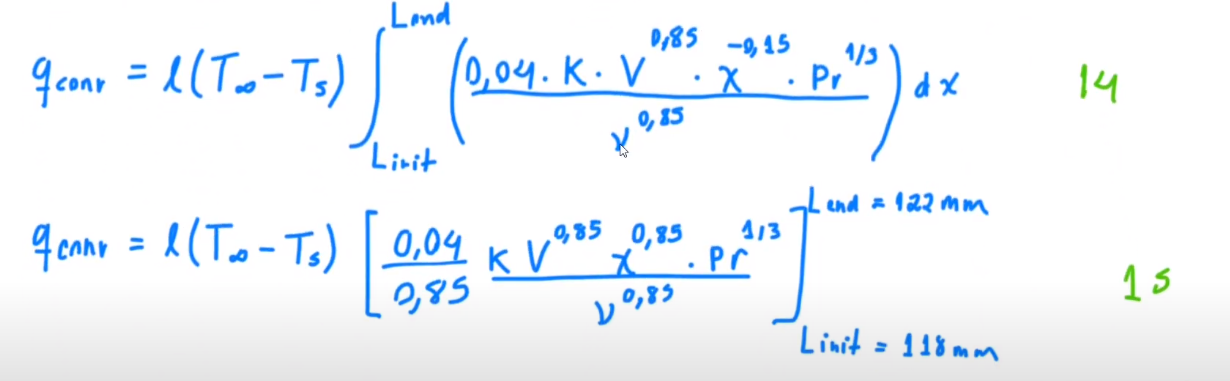 q_conv = l(T∞ - Ts) ∫_Linit^Lend (0,04 · K · V^0,85 · x^-0,15 · Pr^1/3 / ν^0,85) dx 14
q_conv = l(T∞ - Ts) [0,04/0,85 K V^0,85 x^0,85 · Pr^1/3 / ν^0,85]_Linit = 118 mm^Lend = 122 mm 15